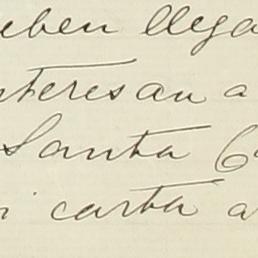 eben llega
nteresan a
Santa C
i carta a